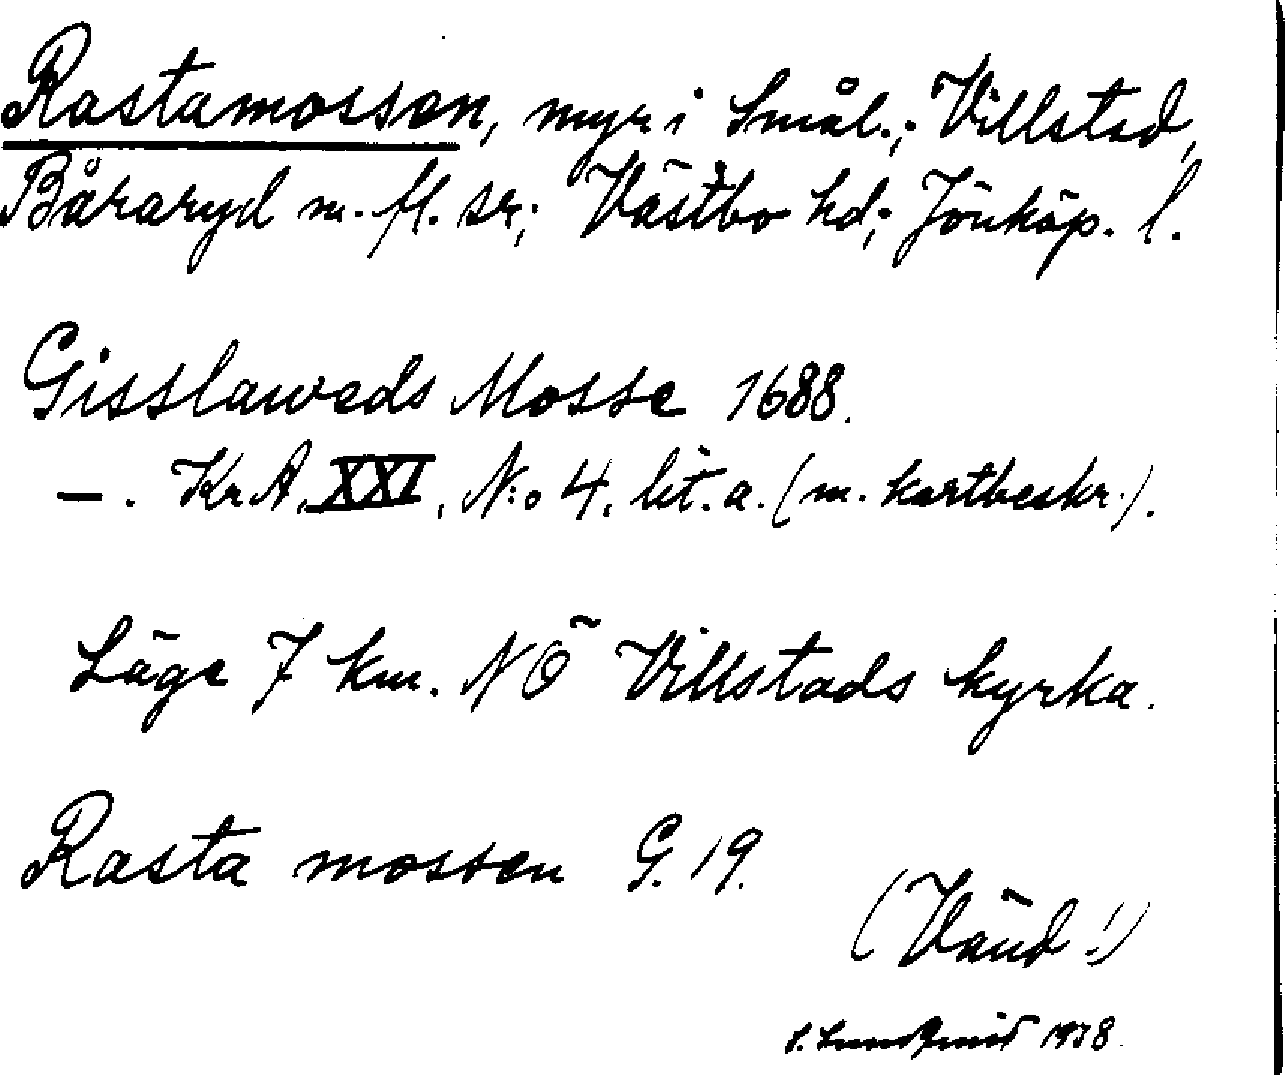 Rastamossen, myr i Smål.; Villstad,
Båraryd m. fl. sr; Västbo hd; Jönköp. l.
Gisslaweds Mosse 1688.
—. Kr.A. XXI, N:o 4. lit. a. (m. kartbeskr.).
Läge 7 km. NÖ Villstads kyrka.
Rasta mossen G. 19.
(Vänd!)
S. Lundqvist 1938